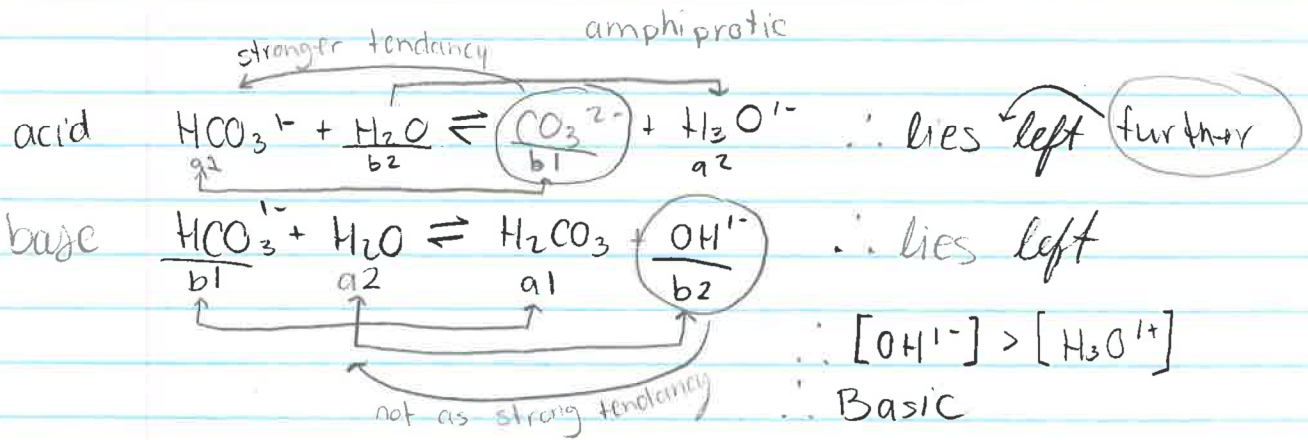 amphiprotic
stronger tendancy
acid HCO₃¹⁻ + H₂O ⇌ CO₃²⁻ + H₃O¹⁻ ∴ lies left further
a1 b2 b1 a2
base HCO₃¹⁻ + H₂O ⇌ H₂CO₃ + OH¹⁻ ∴ lies left
b1 a2 a1 b2
∴ [OH¹⁻] > [H₃O¹⁺]
not as strong tendancy ∴ Basic